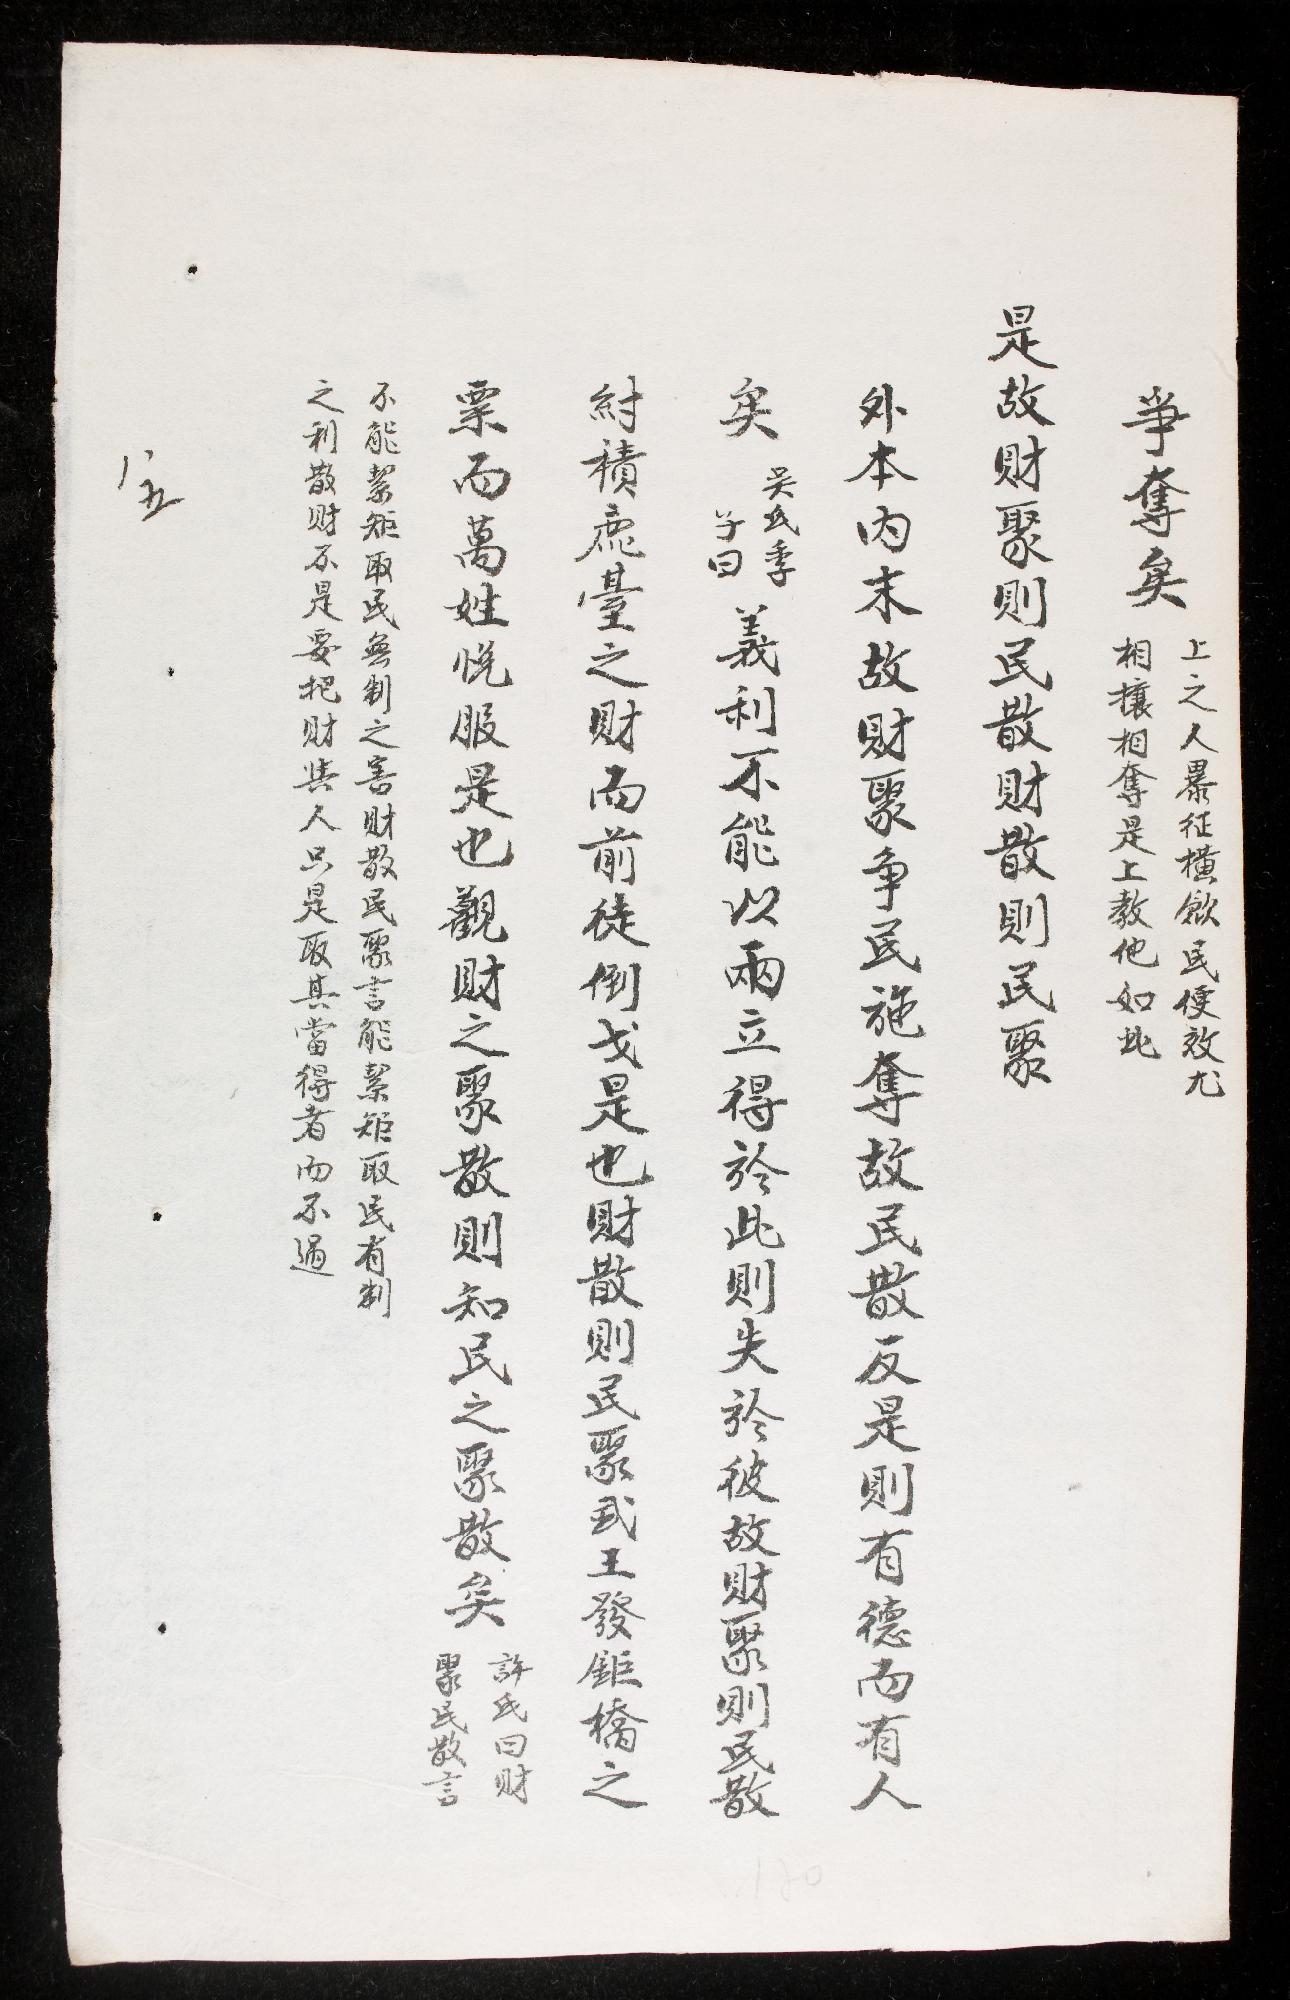 爭奪矣
上之人暴征橫歛民便效尤
相攘相奪是上教他如此
是故財聚則民散財散則民聚
外本內末故財聚争民施奪故民散反是則有德而有人
矣
吴氏季
子曰
義利不能以兩立得於此則失於彼故財聚則民散
紂積鹿臺之財而前徒倒戈是也財散則民聚武王發鉅橋之
粟而萬姓悅服是也觀財之聚散則知民之聚散矣
許氏曰財
聚民散言
不能絜矩取民無制之害財散民聚言能絜矩取民有制
之利散財不是要把财與人只是取其當得者而不過
八五
120